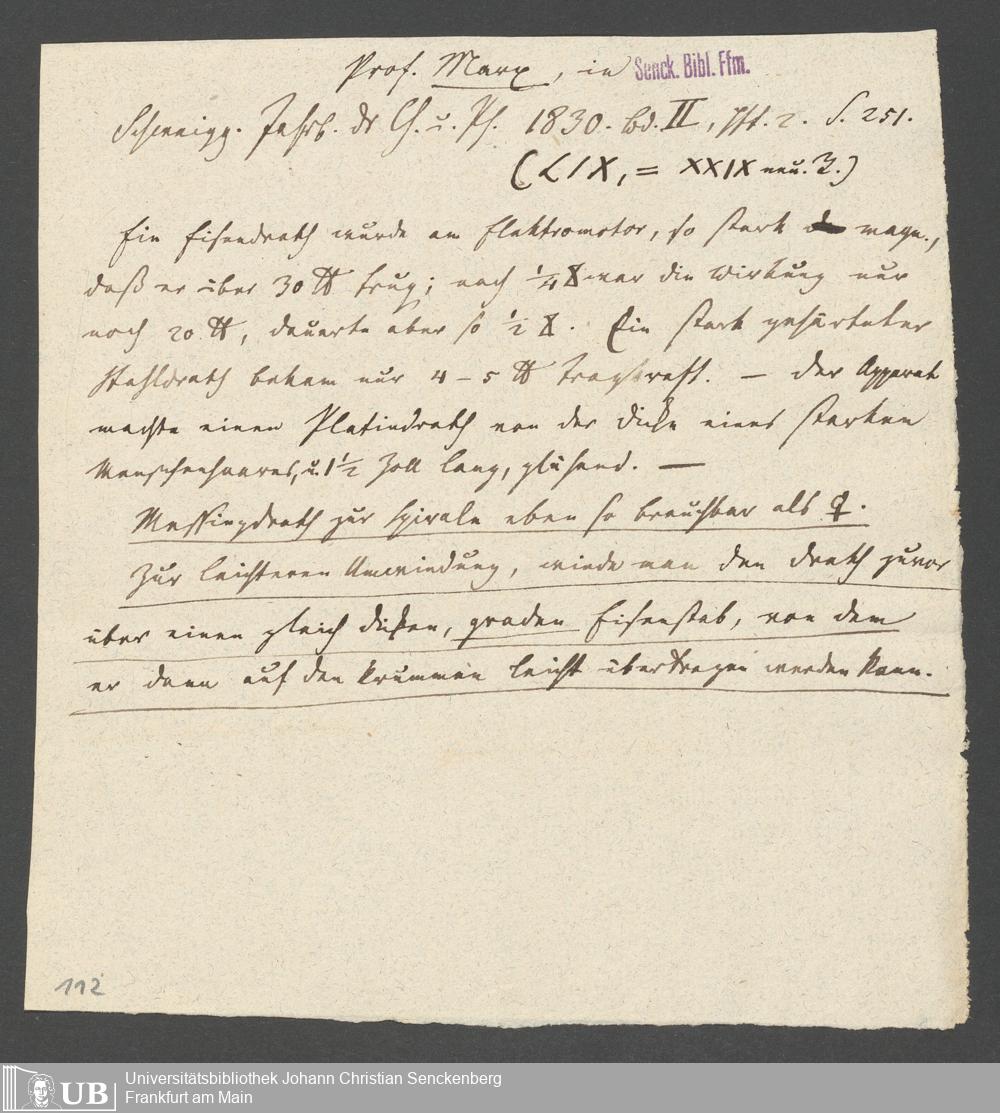 Prof. Marx, in
Senck. Bibl. Ffm.
Schweigg. Jahrb. dr Ch. u. Ph. 1830. bd. II, Hft. 2. S. 251.
(LIX, = XXIX neu. R.)
Ein Eisendrath wurde am Elektromotor, so stark magn.,
daß er über 30 ℔ trug; nach 1/4 war die Wirkung nur
noch 20 ℔, dauerte aber so 1/2. Ein stark gehärteter
Stahldrath bekam nur 4 - 5 ℔ Tragkraft. — Der Apparat
machte einen Platindrath von der Dicke eines starken
Menschenhaares, u. 1 1/2 Zoll lang, glühend. —
Messingdrath zur Spirale eben so brauchbar als ♀.
Zur leichteren Umwindung, winde man den Drath zuvor
über einen gleich dicken, graden Eisenstab, von dem
er dann auf den krummen leicht übertragen werden kann.
112
UB
Universitätsbibliothek Johann Christian Senckenberg
Frankfurt am Main